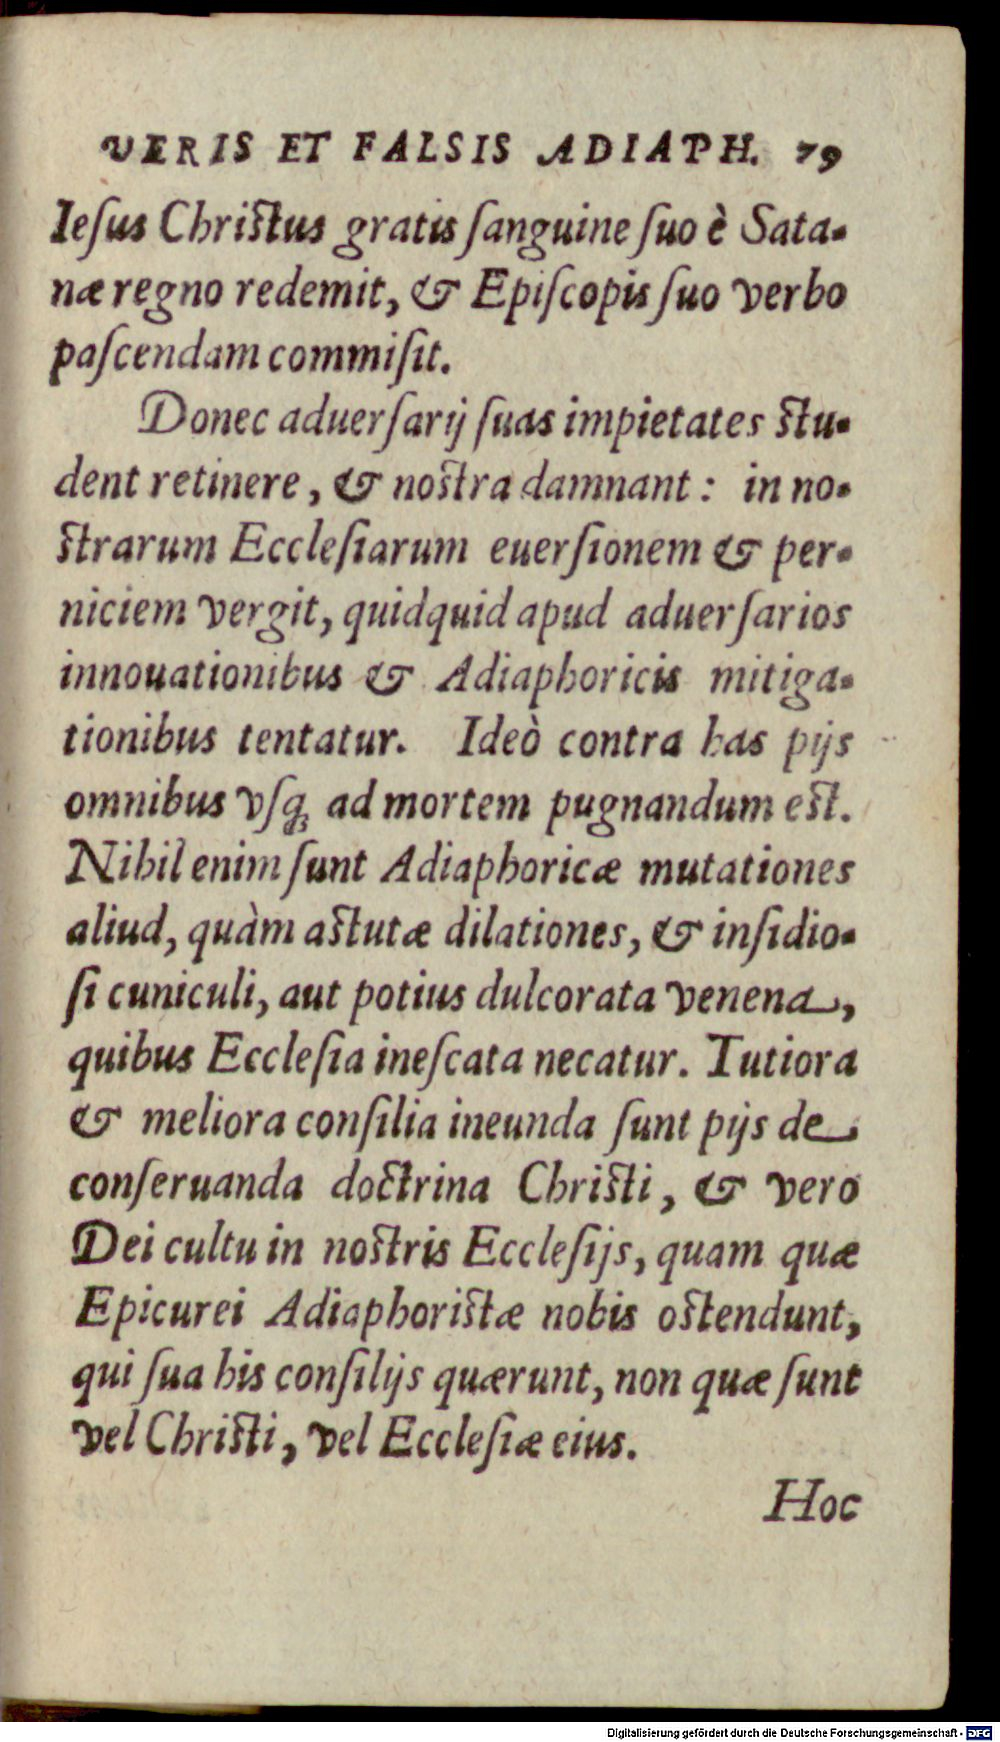 VERIS ET FALSIS ADIAPH. 79
Ieſus Chriſtus gratis ſanguine ſuo è Sata-
næ regno redemit, & Epiſcopis ſuo verbo
paſcendam commiſit.
Donec aduerſarij ſuas impietates ſtu-
dent retinere, & noſtra damnant: in no-
ſtrarum Eccleſiarum euerſionem & per-
niciem vergit, quidquid apud aduerſarios
innouationibus & Adiaphoricis mitiga-
tionibus tentatur. Ideò contra has pijs
omnibus vſq; ad mortem pugnandum eſt.
Nihil enim ſunt Adiaphoricæ mutationes
aliud, quàm aſtutæ dilationes, & inſidio-
ſi cuniculi, aut potius dulcorata venena,
quibus Eccleſia ineſcata necatur. Tutiora
& meliora conſilia ineunda ſunt pijs de
conſeruanda doctrina Chriſti, & vero
Dei cultu in noſtris Eccleſijs, quam quæ
Epicurei Adiaphoriſtæ nobis oſtendunt,
qui ſua his conſilijs quærunt, non quæ ſunt
vel Chriſti, vel Eccleſiæ eius.
Hoc
Digitalisierung gefördert durch die Deutsche Forschungsgemeinschaft - DFG